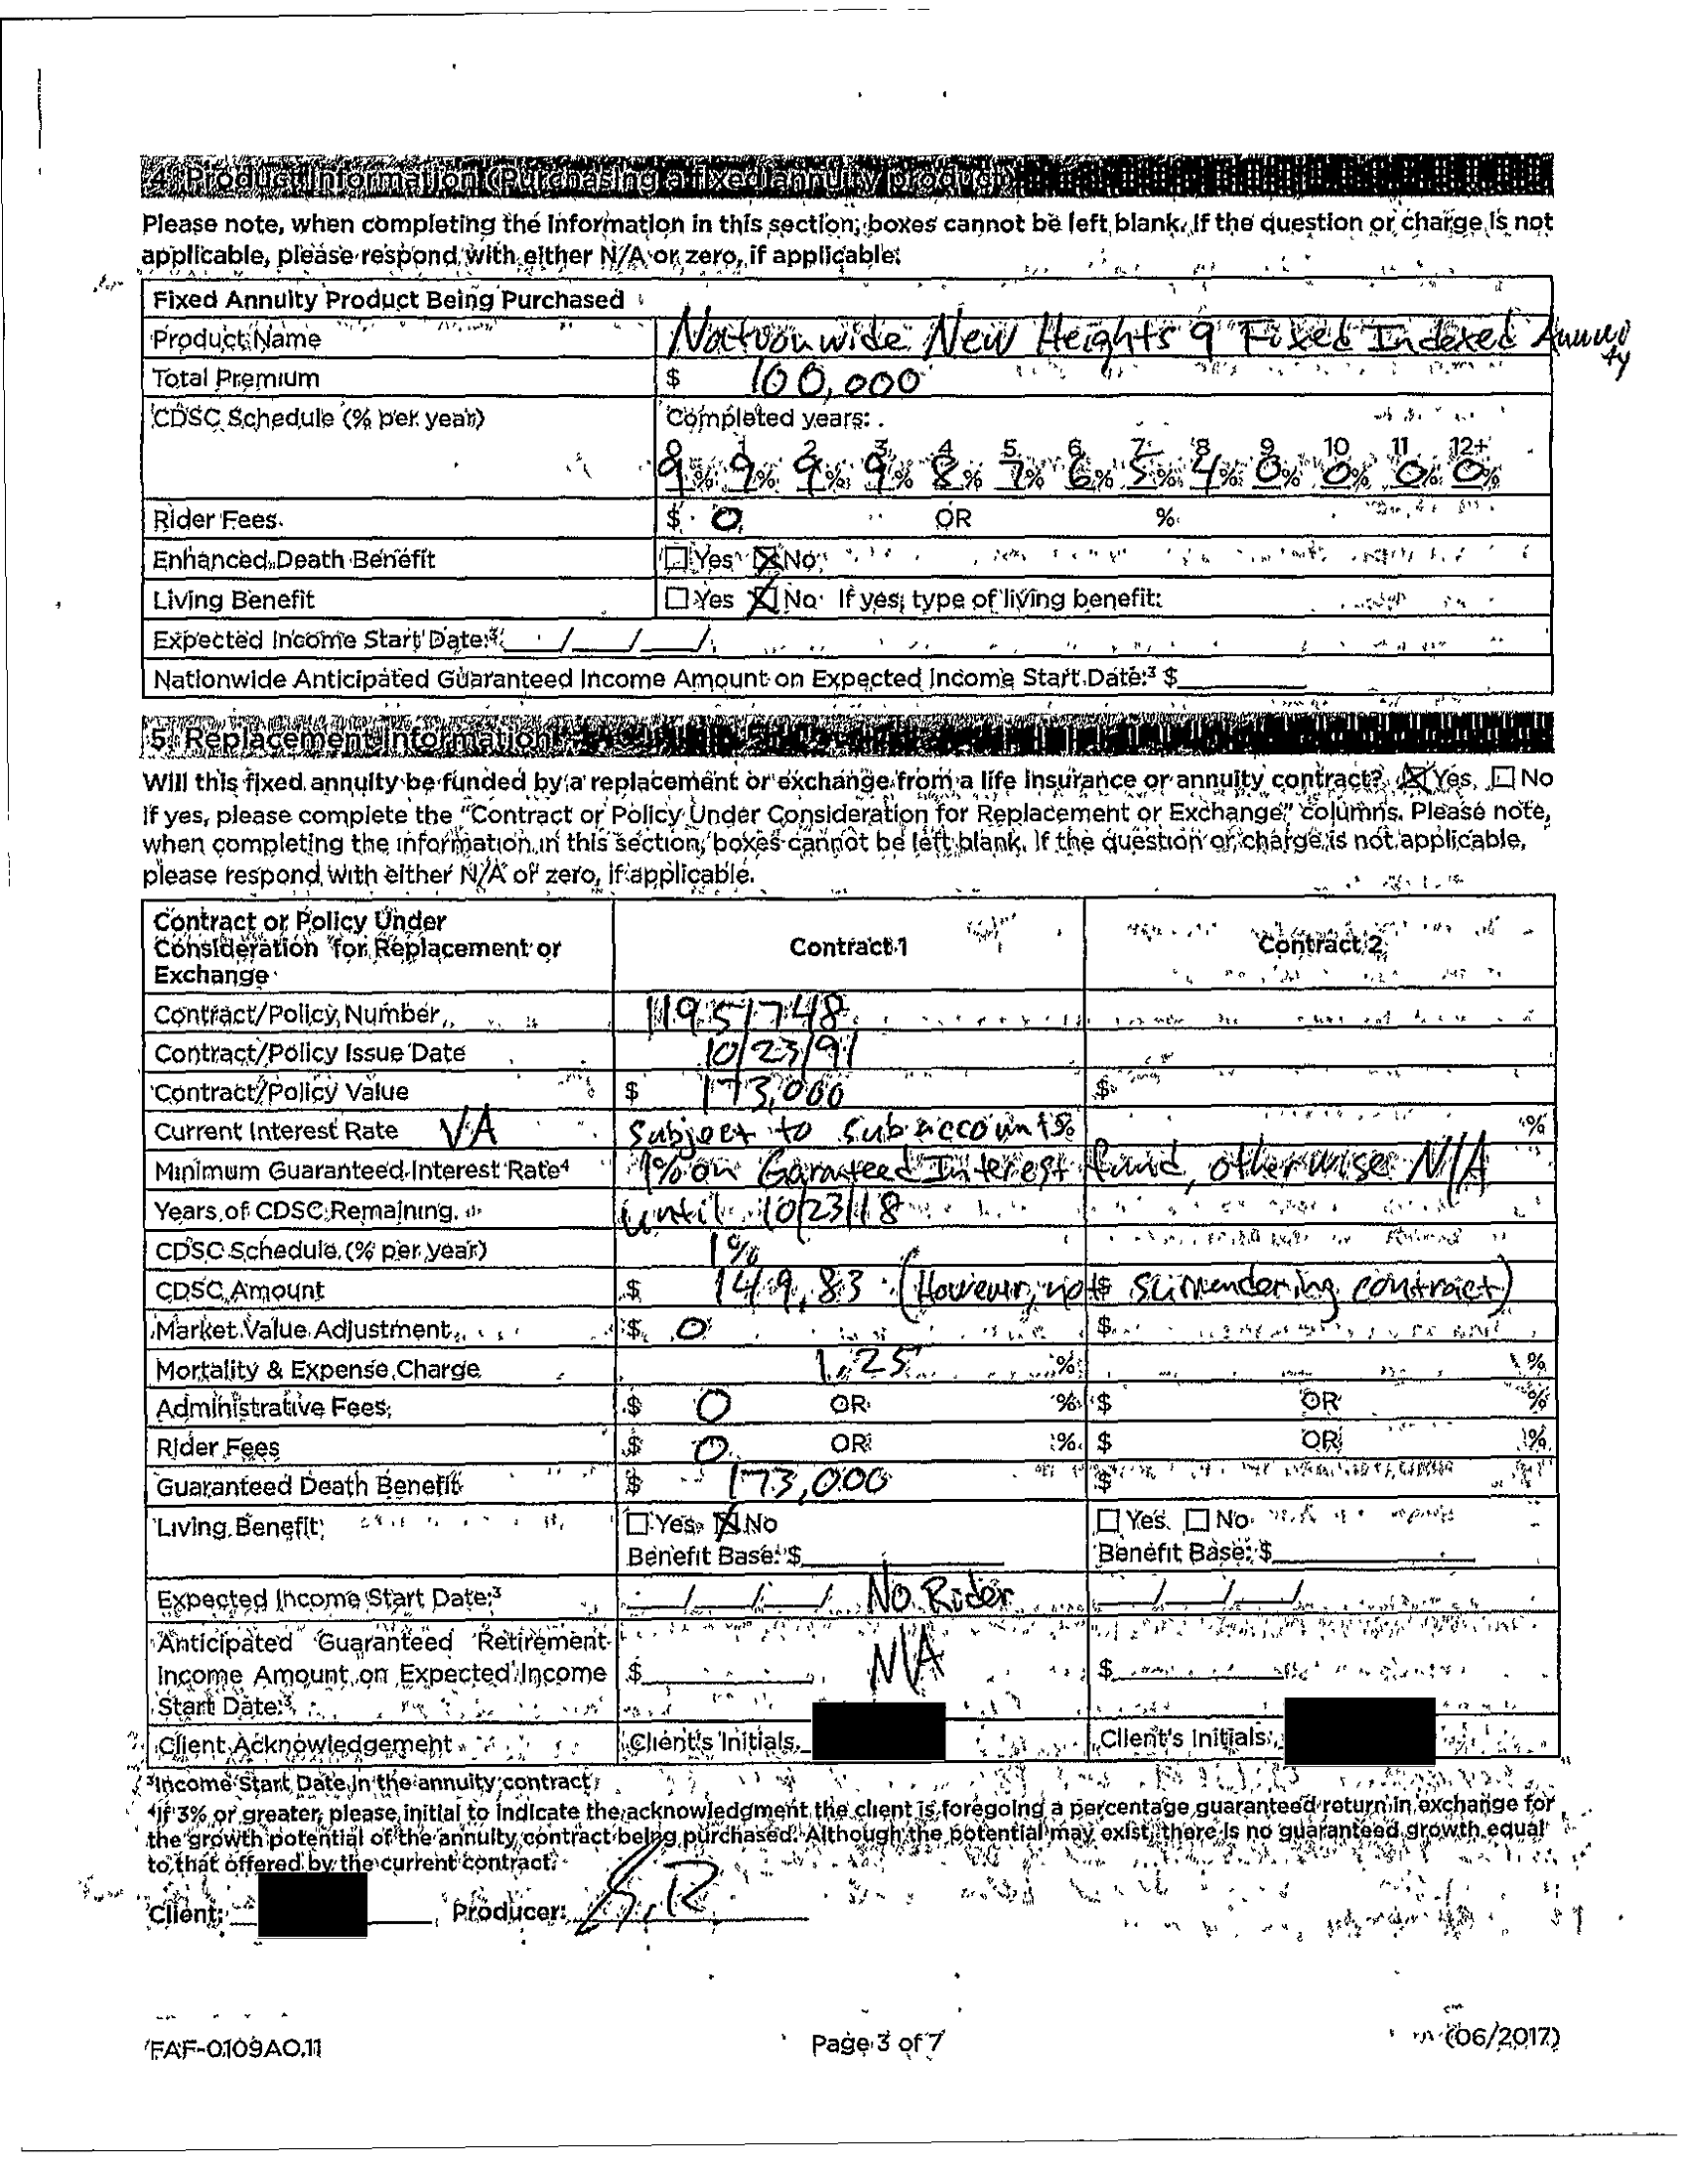 4. Product Information (Purchasing a fixed annuity product)
Please note, when completing the information in this section, boxes cannot be left blank. If the question or charge is not
applicable, please respond with either N/A or zero, if applicable.
Fixed Annuity Product Being Purchased
Product Name Nationwide New Heights 9 Fixed Indexed Annuity
Total Premium $ 100,000
CDSC Schedule (% per year) Completed years:
0 1 2 3 4 5 6 7 8 9 10 11 12+
9% 9% 9% 9% 8% 7% 6% 5% 4% 0% 0% 0% 0%
Rider Fees $ 0 OR %
Enhanced Death Benefit ☐ Yes ☒ No
Living Benefit ☐ Yes ☒ No If yes, type of living benefit:
Expected Income Start Date:³ / / /
Nationwide Anticipated Guaranteed Income Amount on Expected Income Start Date:³ $
5. Replacement Information
Will this fixed annuity be funded by a replacement or exchange from a life insurance or annuity contract? ☒ Yes ☐ No
If yes, please complete the "Contract or Policy Under Consideration for Replacement or Exchange" columns. Please note,
when completing the information in this section, boxes cannot be left blank. If the question or charge is not applicable,
please respond with either N/A or zero, if applicable.
Contract or Policy Under
Consideration for Replacement or
Exchange
Contract 1 Contract 2
Contract/Policy Number 11951748
Contract/Policy Issue Date 10/23/91
Contract/Policy Value $ 173,000 $
Current Interest Rate VA subject to subaccounts % %
Minimum Guaranteed Interest Rate⁴ 1% on Garanteed Interest fund, otherwise N/A
Years of CDSC Remaining until 10/23/18
CDSC Schedule (% per year) 1%
CDSC Amount $ 149.83 (However, not $ surrendering contract)
Market Value Adjustment $ 0 $
Mortality & Expense Charge 1.25 % %
Administrative Fees $ 0 OR % $ OR %
Rider Fees $ 0 OR % $ OR %
Guaranteed Death Benefit $ 173,000 $
Living Benefit ☐ Yes ☒ No ☐ Yes ☐ No
Benefit Base: $ Benefit Base: $
Expected Income Start Date:³ / / / No Rider / / /
Anticipated Guaranteed Retirement
Income Amount on Expected Income $ N/A $
Start Date:³
Client Acknowledgement Client's Initials Client's Initials:
³Income Start Date in the annuity contract
⁴If 3% or greater, please initial to indicate the acknowledgment the client is foregoing a percentage guaranteed return in exchange for
the growth potential of the annuity contract being purchased. Although the potential may exist, there is no guaranteed growth equal
to that offered by the current contract.
Client: Producer: S.R
FAF-0109AO.11 Page 3 of 7 (06/2017)